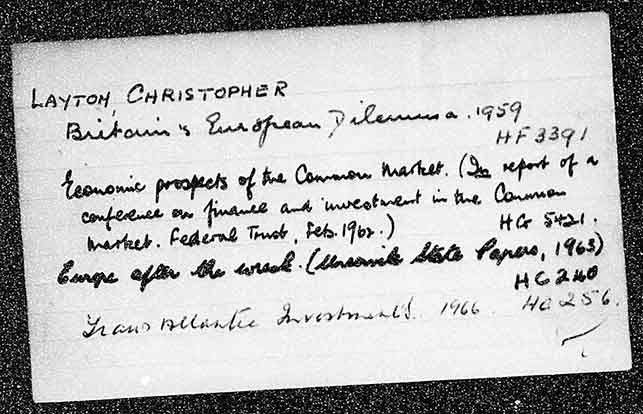 LAYTON, CHRISTOPHER
Britain's European Dilemma. 1959
HF 3391
Economic prospects of the Common Market. (In report of a
conference on finance and investment in the Common
Market. Federal Trust, Feb. 1962.)
HG 5421.
Europe after the wreck. (Unservile State Papers, 1963)
HC 240
Trans Atlantic Investments. 1966.
HG 256.